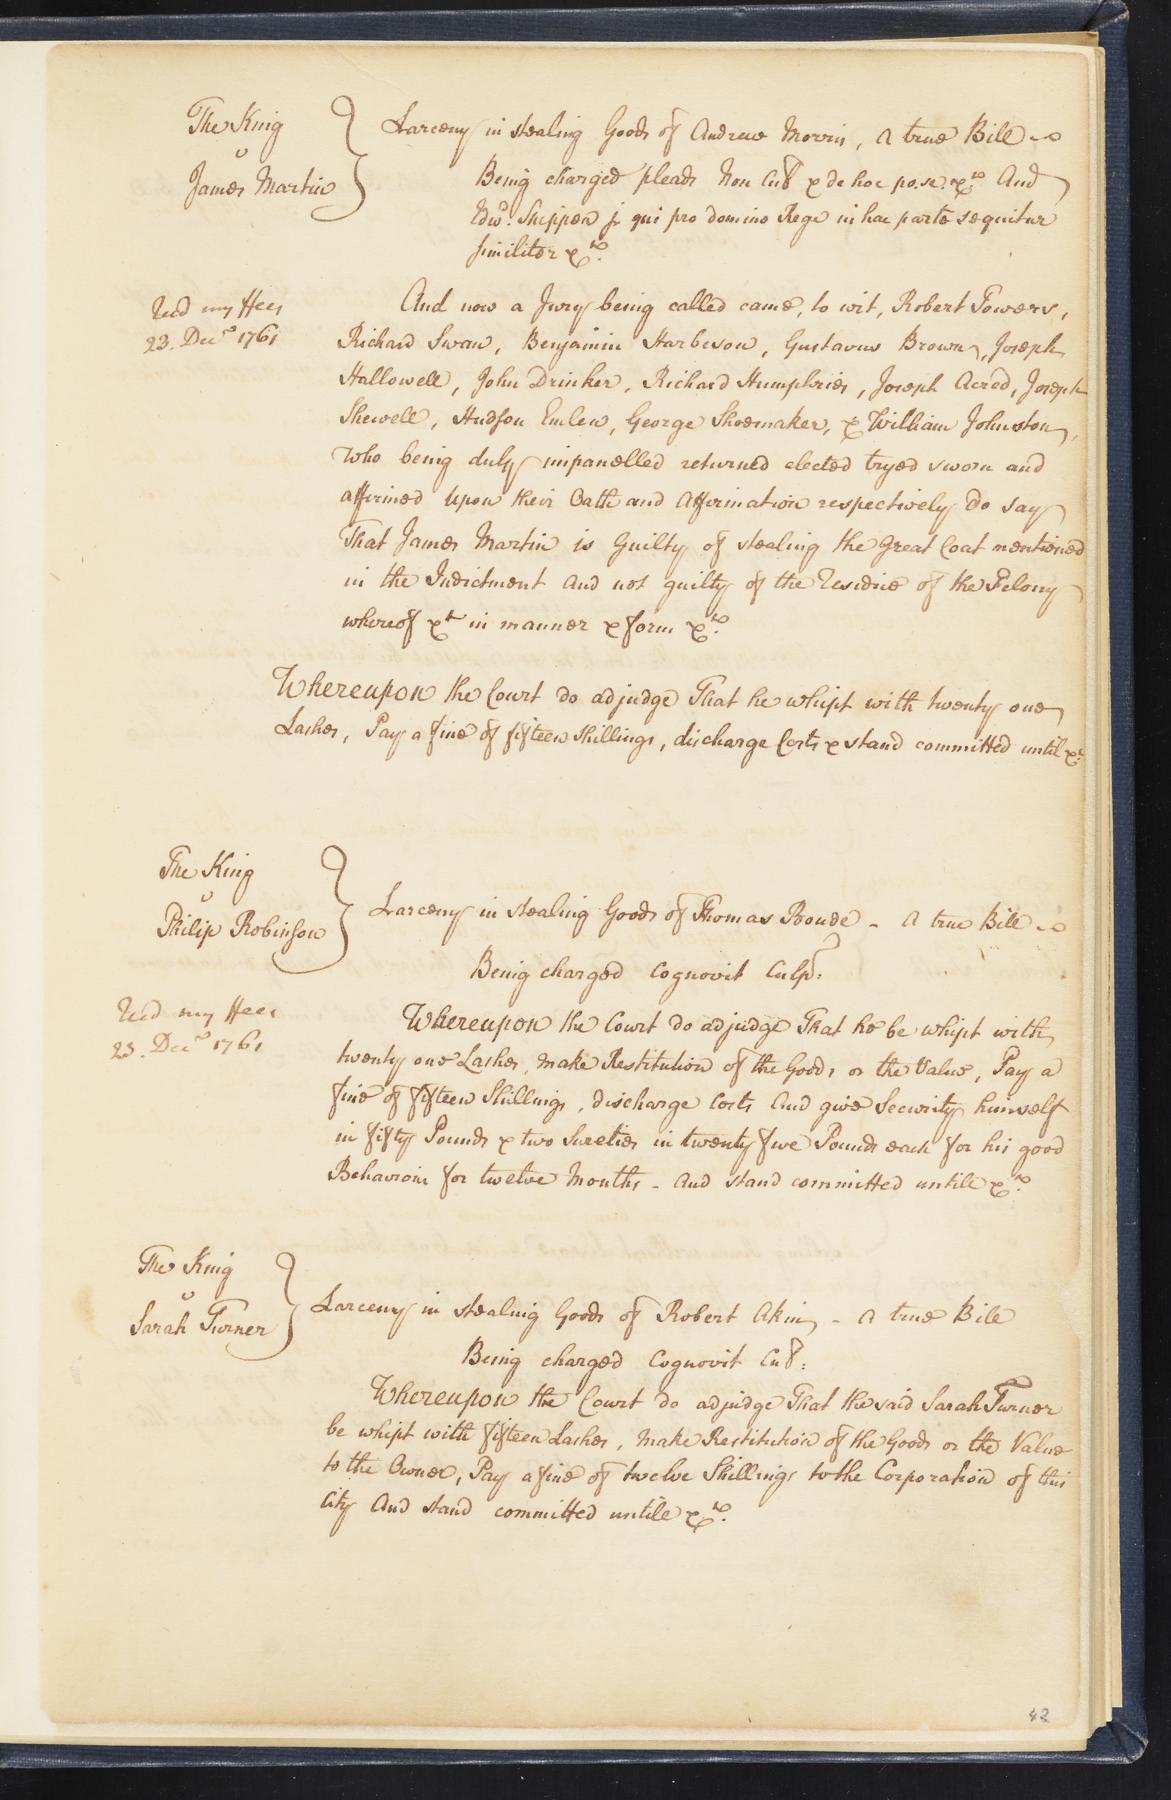 The King
v
James Martin
Larceny in stealing Goods of Andrew Morris, A true Bill
Being charged pleads Non Cul & de hoc po. se. &c. And
Edwd. Shippen jr qui pro domino Rege in hac parte sequitur
similiter &c.
Recd my Fees
23. Decr 1761
And now a Jury being called came, to wit, Robert Towers,
Richard Swan, Benjamin Harbeson, Gustavus Brown, Joseph
Hallowell, John Drinker, Richard Humphries, Joseph Acred, Joseph
Shewell, Hudson Emlen, George Shoemaker, & William Johnston,
Who being duly impanelled returned elected tryed sworn and
affirmed Upon their Oath and Affirmation respectively Do say
That James Martin is Guilty of stealing the Great Coat mentioned
in the Indictment And not guilty of the Residue of the Felony
whereof &c in manner & form &c.
Whereupon the Court do adjudge That he whipt with twenty one
Lashes, Pay a fine of fifteen shillings, discharge Costs & stand committed until &c.
The King
v
Philip Robinson
Larceny in stealing Goods of Thomas Boude - A true Bill
Being charged Cognovit Culp:
Recd my Fees
23. Decr 1761
Whereupon the Court do adjudge That he be whipt with
twenty one Lashes, make Restitution of the Goods or the Value, Pay a
fine of fifteen Shillings, discharge Costs And give Security himself
in fifty Pounds & two Sureties in twenty five Pounds each for his good
Behaviour for twelve Months - And stand committed untill &c.
The King
v
Sarah Turner
Larceny in stealing Goods of Robert Akin - A true Bill
Being charged Cognovit Cul:
Whereupon the Court do adjudge That the said Sarah Turner
be whipt with fifteen Lashes, Make Restitution of the Goods or the Value
to the Owner, Pay a fine of twelve Shillings to the Corporation of this
City And stand committed untill &c.
42